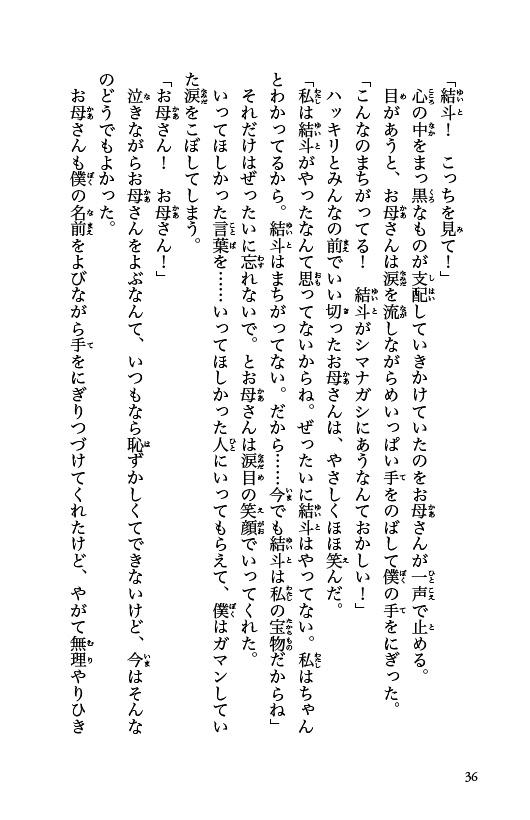 「結斗！　こっちを見て！」
心の中をまっ黒なものが支配していきかけていたのをお母さんが一声で止める。
目があうと、お母さんは涙を流しながらめいっぱい手をのばして僕の手をにぎった。
「こんなのまちがってる！　結斗がシマナガシにあうなんておかしい！」
ハッキリとみんなの前でいい切ったお母さんは、やさしくほほ笑んだ。
「私は結斗がやったなんて思ってないからね。ぜったいに結斗はやってない。私はちゃん
とわかってるから。結斗はまちがってない。だから……今でも結斗は私の宝物だからね」
それだけはぜったいに忘れないで。とお母さんは涙目の笑顔でいってくれた。
いってほしかった言葉を……いってほしかった人にいってもらえて、僕はガマンしてい
た涙をこぼしてしまう。
「お母さん！　お母さん！」
泣きながらお母さんをよぶなんて、いつもなら恥ずかしくてできないけど、今はそんな
のどうでもよかった。
お母さんも僕の名前をよびながら手をにぎりつづけてくれたけど、やがて無理やりひき
36